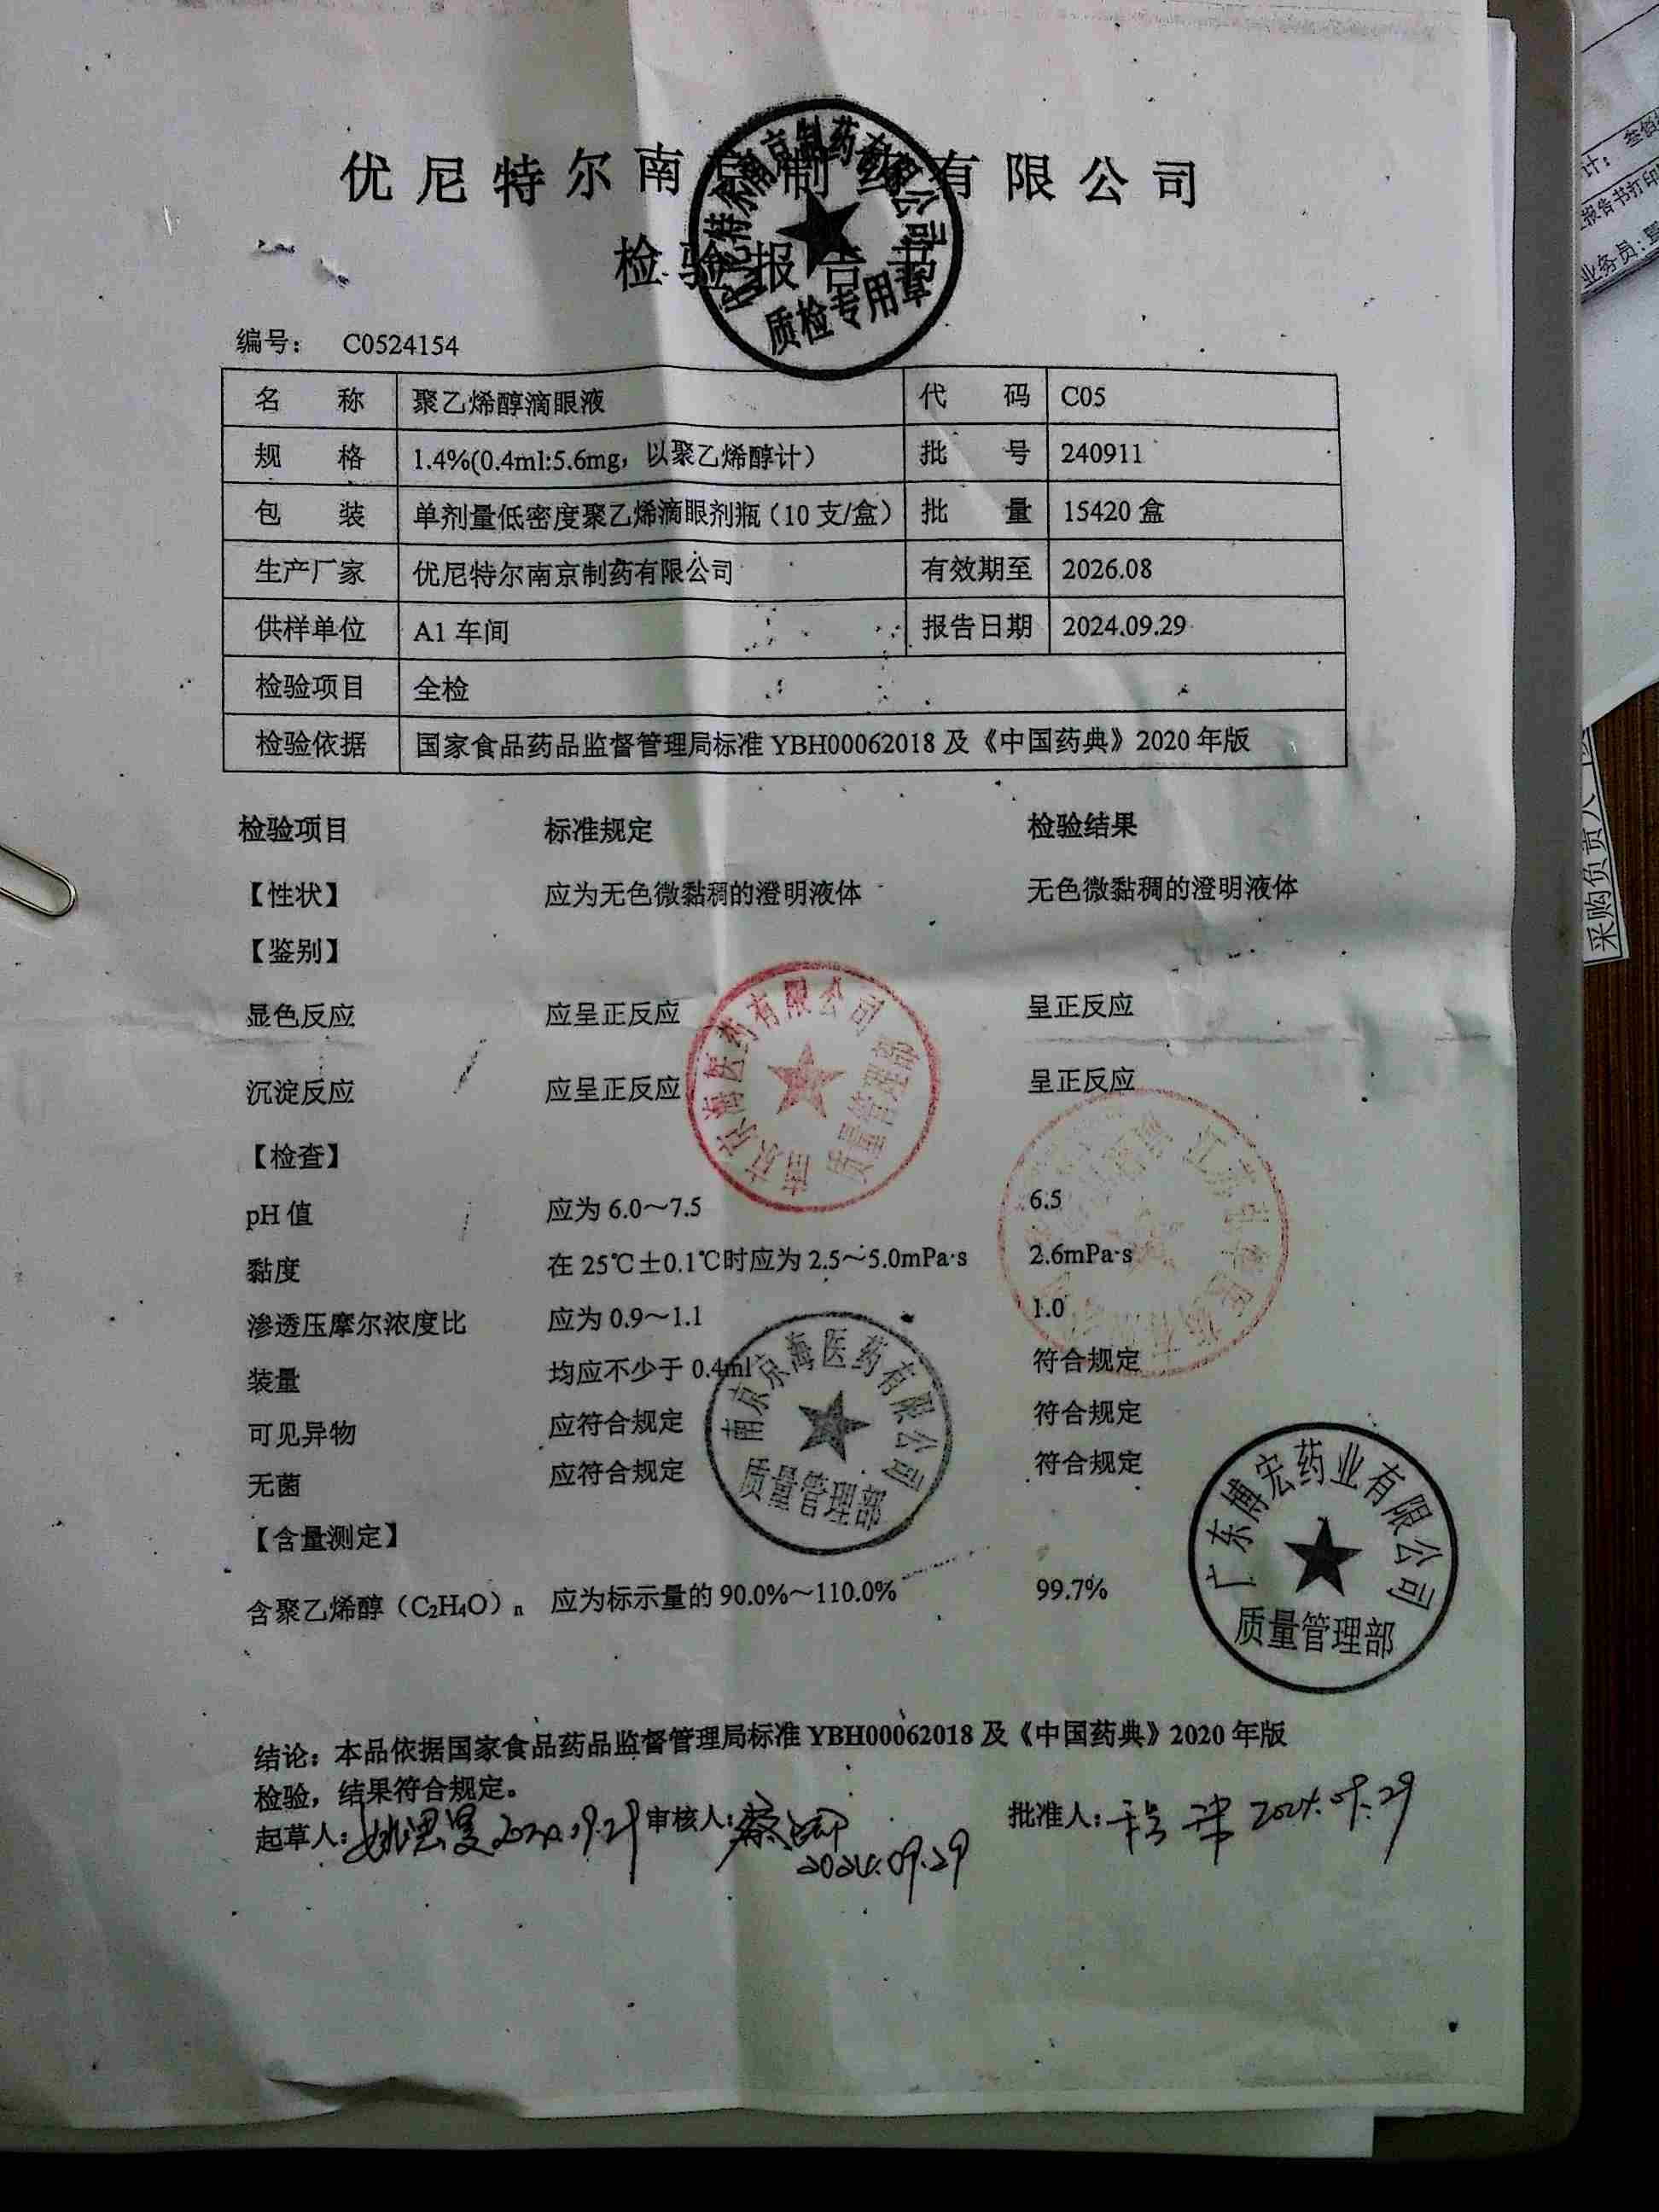 优尼特尔南京制药有限公司
检验报告书
质检专用章
编号： C0524154
名 称 聚乙烯醇滴眼液 代 码 C05
规 格 1.4%(0.4ml:5.6mg，以聚乙烯醇计） 批 号 240911
包 装 单剂量低密度聚乙烯滴眼剂瓶（10 支/盒） 批 量 15420 盒
生产厂家 优尼特尔南京制药有限公司 有效期至 2026.08
供样单位 A1 车间 报告日期 2024.09.29
检验项目 全检
检验依据 国家食品药品监督管理局标准 YBH00062018 及《中国药典》2020 年版
检验项目 标准规定 检验结果
【性状】 应为无色微黏稠的澄明液体 无色微黏稠的澄明液体
【鉴别】
显色反应 应呈正反应 呈正反应
沉淀反应 应呈正反应 呈正反应
南京京海医药有限公司
质量管理部
【检查】
pH 值 应为 6.0～7.5 6.5
黏度 在 25℃±0.1℃时应为 2.5～5.0mPa·s 2.6mPa·s
渗透压摩尔浓度比 应为 0.9～1.1 1.0
装量 均应不少于 0.4ml 符合规定
可见异物 应符合规定 符合规定
无菌 应符合规定 符合规定
南京京海医药有限公司
质量管理部
【含量测定】
含聚乙烯醇（C₂H₄O）n 应为标示量的 90.0%～110.0% 99.7%
广东博宏药业有限公司
质量管理部
结论：本品依据国家食品药品监督管理局标准 YBH00062018 及《中国药典》2020 年版
检验，结果符合规定。
起草人： 2024.09.29 审核人： 批准人： 2024.09.29
2024.09.29
计：
报告书打印
业务员：
采购负责人